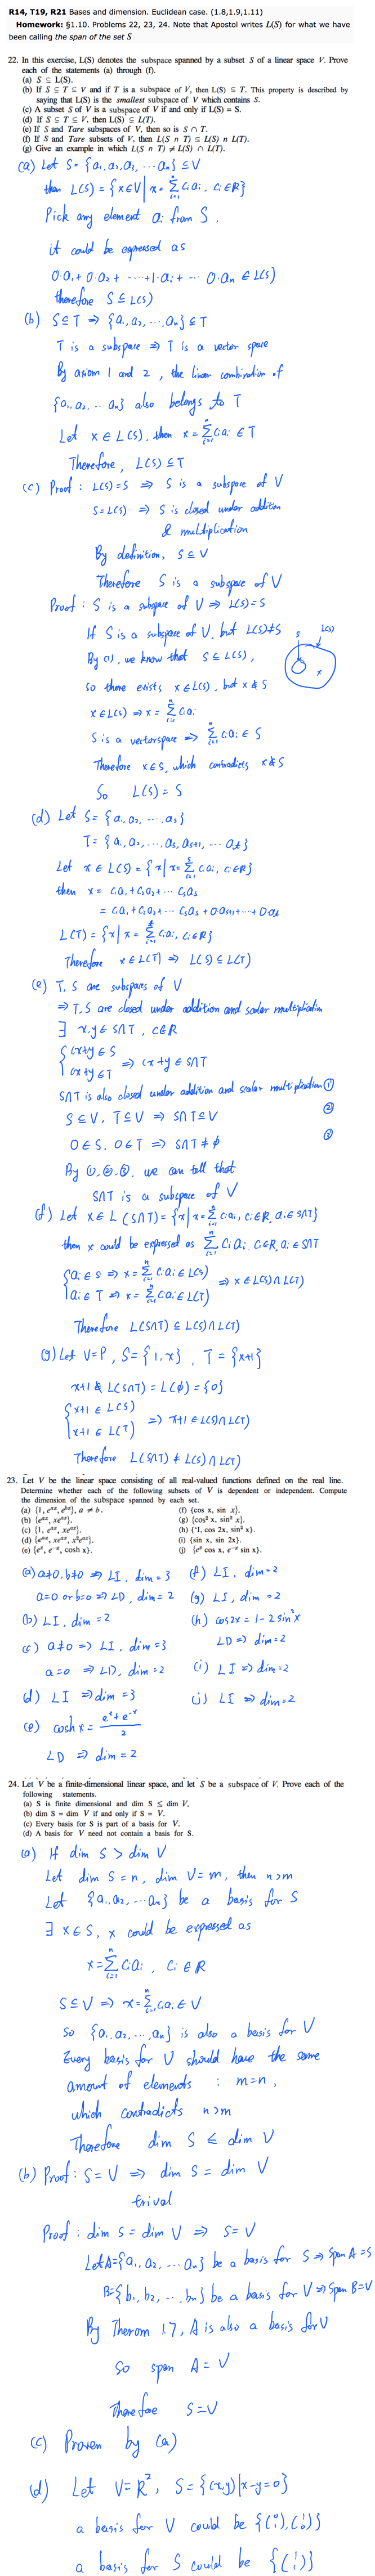 R14, T19, R21 Bases and dimension. Euclidean case. (1.8,1.9,1.11)
Homework: §1.10. Problems 22, 23, 24. Note that Apostol writes L(S) for what we have
been calling the span of the set S
22. In this exercise, L(S) denotes the subspace spanned by a subset S of a linear space V. Prove
each of the statements (a) through (f).
(a) S ⊆ L(S).
(b) If S ⊆ T ⊆ V and if T is a subspace of V, then L(S) ⊆ T. This property is described by
saying that L(S) is the smallest subspace of V which contains S.
(c) A subset S of V is a subspace of V if and only if L(S) = S.
(d) If S ⊆ T ⊆ V, then L(S) ⊆ L(T).
(e) If S and T are subspaces of V, then so is S ∩ T.
(f) If S and T are subsets of V, then L(S ∩ T) ⊆ L(S) ∩ L(T).
(g) Give an example in which L(S ∩ T) ≠ L(S) ∩ L(T).
(a) Let S = {a₁, a₂, a₃, ... aₙ} ⊆ V
then L(S) = {x∈V | x = Σⁿᵢ₌₁ cᵢaᵢ, cᵢ∈R}
Pick any element aᵢ from S,
it could be expressed as
0·a₁ + 0·a₂ + ··· +1·aᵢ + ··· 0·aₙ ∈ L(S)
therefore S ⊆ L(S)
(b) S⊆T ⇒ {a₁, a₂, ..., aₙ} ⊆ T
T is a subspace ⇒ T is a vector space
By axiom 1 and 2, the linear combination of
{a₁, a₂, ... aₙ} also belongs to T
Let x ∈ L(S), then x = Σⁿᵢ₌₁ cᵢaᵢ ∈ T
Therefore, L(S) ⊆ T
(c) Proof : L(S) = S ⇒ S is a subspace of V
S = L(S) ⇒ S is closed under addition
& multiplication
By definition, S ⊆ V
Therefore S is a subspace of V
Proof : S is a subspace of V ⇒ L(S) = S
If S is a subspace of V, but L(S) ≠ S
S L(S)
By (1), we know that S ⊆ L(S),
x
so there exists x ∈ L(S), but x ∉ S
x ∈ L(S) ⇒ x = Σⁿᵢ₌₁ cᵢaᵢ
S is a vectorspace ⇒ Σⁿᵢ₌₁ cᵢaᵢ ∈ S
Therefore x∈S, which contradicts x∉S
So L(S) = S
(d) Let S = {a₁, a₂, ..., aₛ}
T = {a₁, a₂, ..., aₛ, aₛ₊₁, ... aₜ}
Let x ∈ L(S) = {x | x = Σˢᵢ₌₁ cᵢaᵢ, cᵢ∈R}
then x = c₁a₁ + c₂a₂ + ··· cₛaₛ
= c₁a₁ + c₂a₂ + ··· cₛaₛ + 0aₛ₊₁ + ··· + 0aₜ
L(T) = {x | x = Σᵗᵢ₌₁ cᵢaᵢ, cᵢ∈R}
Therefore x ∈ L(T) ⇒ L(S) ⊆ L(T)
(e) T, S are subspaces of V
⇒ T, S are closed under addition and scalar multiplication
∃ x,y ∈ S∩T, c∈R
{ cx+y ∈ S
cx+y ∈ T ⇒ cx+y ∈ S∩T
S∩T is also closed under addition and scalar multiplication ①
S⊆V, T⊆V ⇒ S∩T ⊆ V ②
0∈S, 0∈T ⇒ S∩T ≠ ∅ ③
By ①, ②, ③, we can tell that
S∩T is a subspace of V
(f) Let x ∈ L(S∩T) = {x | x = Σⁿᵢ₌₁ cᵢaᵢ, cᵢ∈R, aᵢ∈S∩T}
then x could be expressed as Σⁿᵢ₌₁ cᵢaᵢ, cᵢ∈R, aᵢ∈S∩T
{ aᵢ∈S ⇒ x = Σⁿᵢ₌₁ cᵢaᵢ ∈ L(S)
aᵢ∈T ⇒ x = Σⁿᵢ₌₁ cᵢaᵢ ∈ L(T) ⇒ x ∈ L(S)∩L(T)
Therefore L(S∩T) ⊆ L(S)∩L(T)
(g) Let V=P, S={1, x}, T={x+1}
x+1 ∉ L(S∩T) = L(∅) = {0}
{ x+1 ∈ L(S)
x+1 ∈ L(T) ⇒ x+1 ∈ L(S)∩L(T)
Therefore L(S∩T) ≠ L(S)∩L(T)
23. Let V be the linear space consisting of all real-valued functions defined on the real line.
Determine whether each of the following subsets of V is dependent or independent. Compute
the dimension of the subspace spanned by each set.
(a) {1, eᵃˣ, eᵇˣ}, a ≠ b. (f) {cos x, sin x}.
(b) {eᵃˣ, xeᵃˣ}. (g) {cos² x, sin² x}.
(c) {1, eᵃˣ, xeᵃˣ}. (h) {'1, cos 2x, sin² x}.
(d) {eᵃˣ, xeᵃˣ, x²eᵃˣ}. (i) {sin x, sin 2x}.
(e) {eˣ, e⁻ˣ, cosh x}. (j) {eˣ cos x, e⁻ˣ sin x}.
(a) a≠0, b≠0 ⇒ LI, dim = 3 (f) LI, dim = 2
a=0 or b=0 ⇒ LD, dim = 2 (g) LI, dim = 2
(b) LI, dim = 2 (h) cos2x = 1 - 2 sin²x
(c) a≠0 ⇒ LI, dim = 3 LD ⇒ dim = 2
a=0 ⇒ LD, dim = 2 (i) LI ⇒ dim = 2
(d) LI ⇒ dim = 3 (j) LI ⇒ dim = 2
(e) cosh x = (eˣ + e⁻ˣ)/2
LD ⇒ dim = 2
24. Let V be a finite-dimensional linear space, and let S be a subspace of V. Prove each of the
following statements.
(a) S is finite dimensional and dim S ≤ dim V.
(b) dim S = dim V if and only if S = V.
(c) Every basis for S is part of a basis for V.
(d) A basis for V need not contain a basis for S.
(a) If dim S > dim V
Let dim S = n, dim V = m, then n>m
Let {a₁, a₂, ... aₙ} be a basis for S
∃ x∈S, x could be expressed as
x = Σⁿᵢ₌₁ cᵢaᵢ, cᵢ ∈ R
S⊆V ⇒ x = Σⁿᵢ₌₁ cᵢaᵢ ∈ V
so {a₁, a₂, ..., aₙ} is also a basis for V
Every basis for V should have the same
amount of elements : m=n,
which contradicts n>m
Therefore dim S ≤ dim V
(b) Proof : S = V ⇒ dim S = dim V
trival
Proof : dim S = dim V ⇒ S=V
Let A={a₁, a₂, ... aₙ} be a basis for S ⇒ Span A = S
B={b₁, b₂, ..., bₙ} be a basis for V ⇒ Span B = V
By Therom 1.7, A is also a basis for V
So span A = V
Therefore S = V
(c) Proven by (a)
(d) Let V = R², S = {(x,y) | x-y=0}
a basis for V could be {(⁰₁), (¹₀)}
a basis for S could be {(¹₁)}